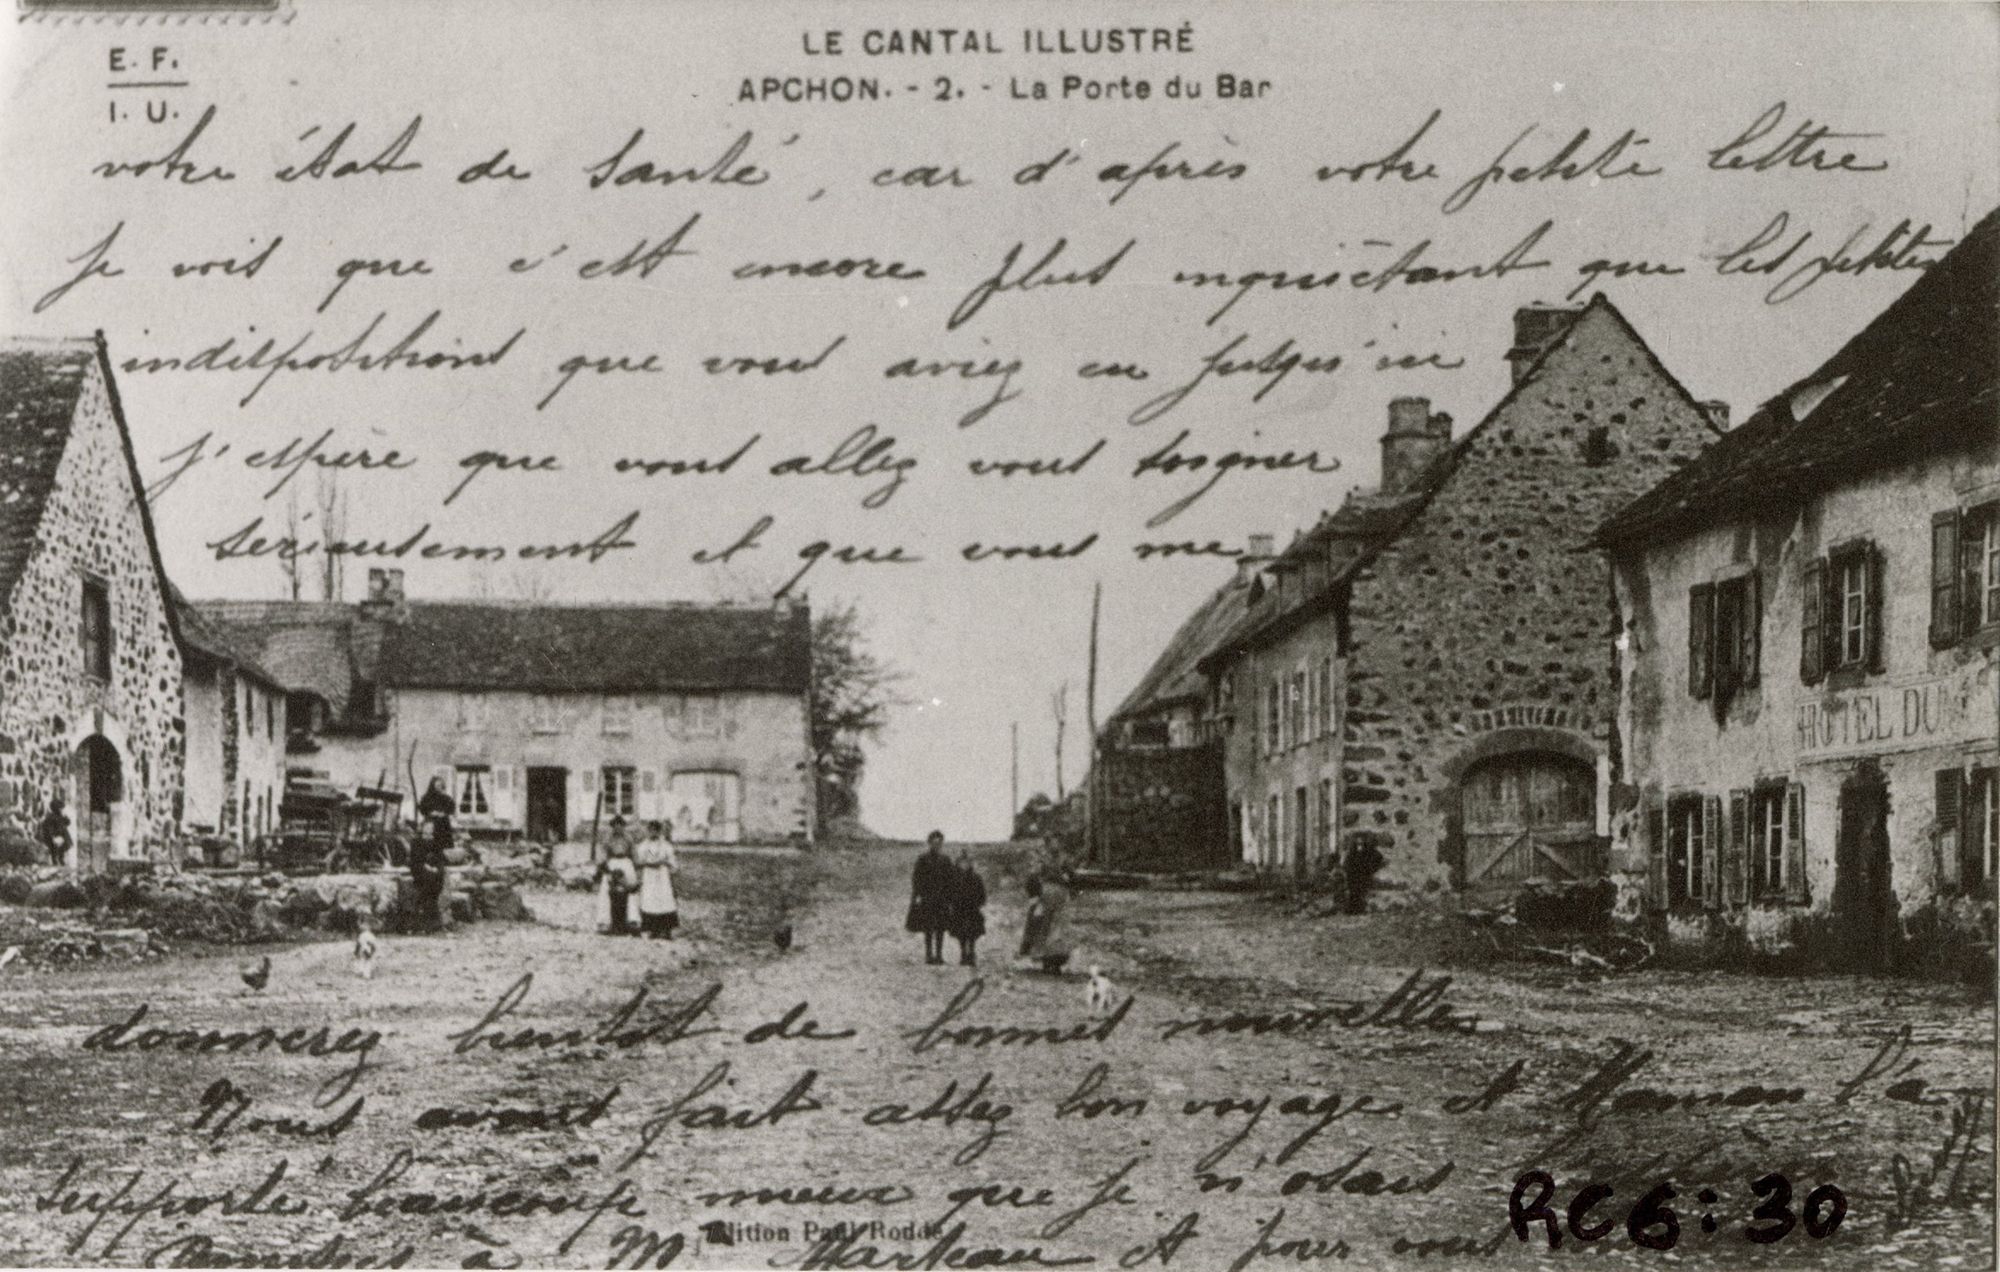 LE CANTAL ILLUSTRÉ
E. F.
I. U.
APCHON. - 2. - La Porte du Bar
votre état de santé, car d'après votre petite lettre
je vois que c'est encore plus inquiétant que les petites
indispositions que vous aviez eu jusqu'ici
j'espère que vous allez vous soigner
sérieusement et que vous me
HÔTEL DU
donnerez bientot de bonnes nouvelles
Nous avons fait assez bon voyage et Maman l'a
supporté beaucoup mieux que je n'osais
Edition Paul Rodde
à M Marteau et pour vous
RC6:30